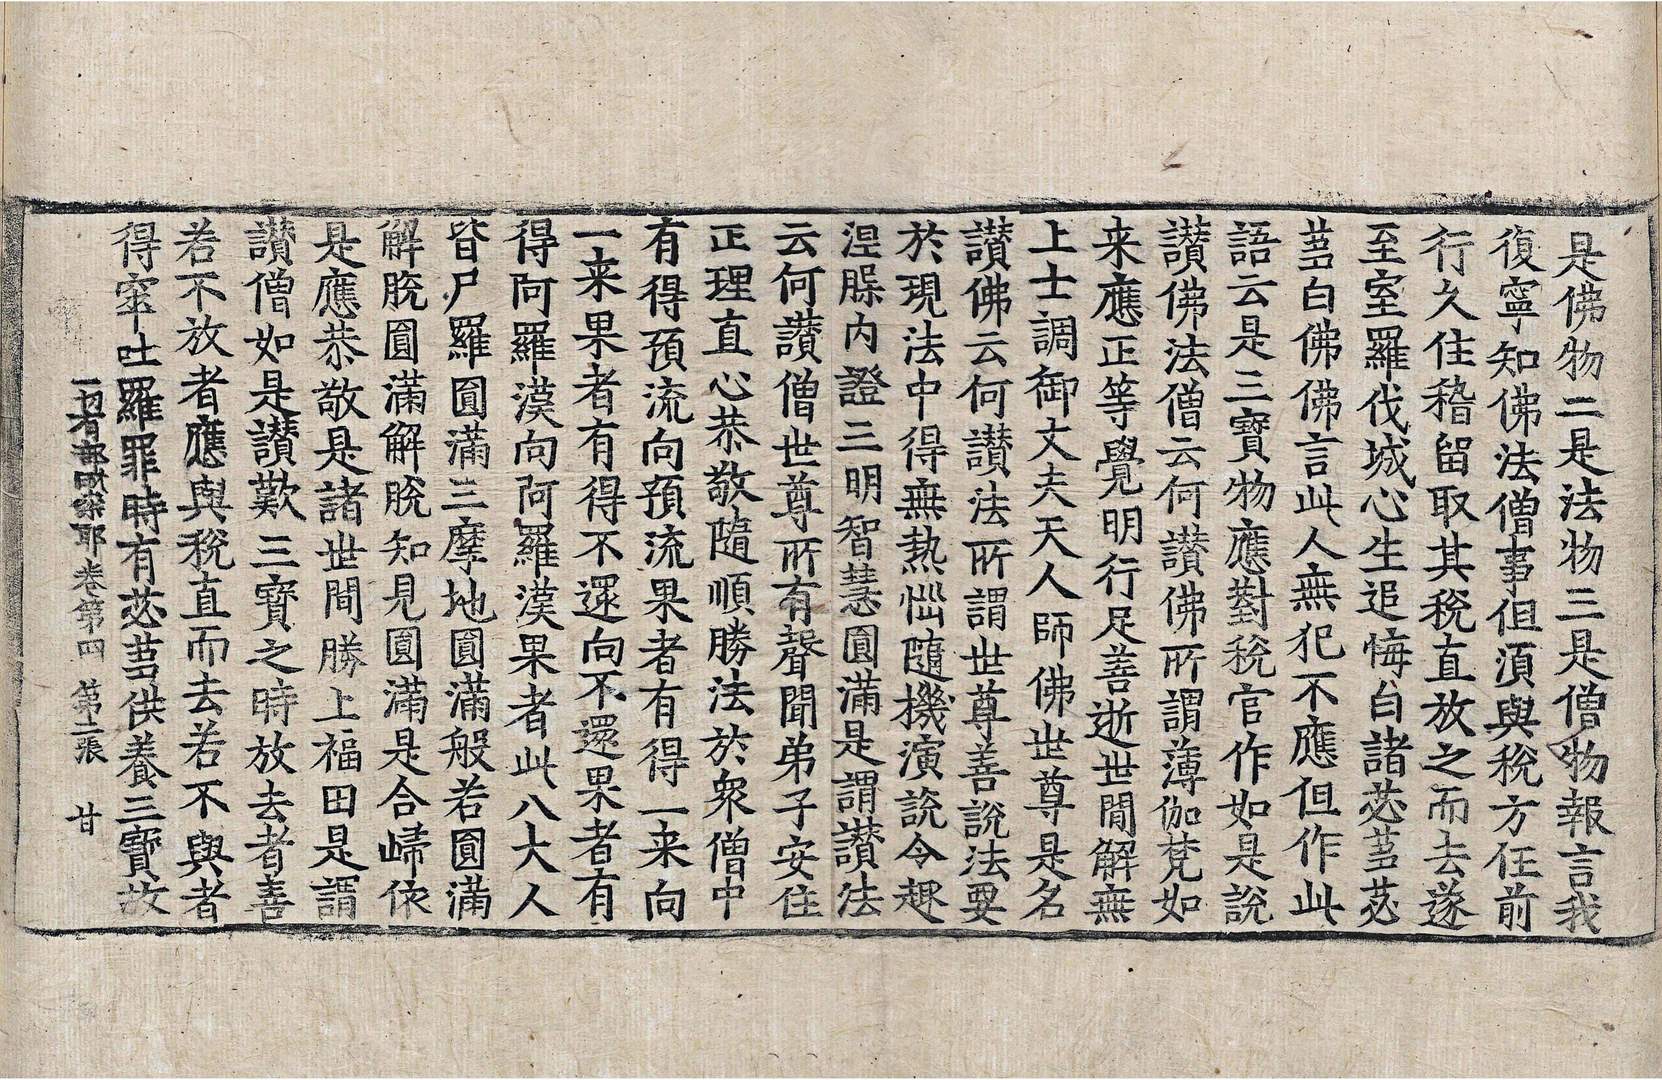 是佛物二是法物三是僧物報言我
復寧知佛法僧事但湏與稅方任前
行久住稽留取其稅直放之而去遂
至室羅伐城心生追悔白諸苾芻苾
芻白佛佛言此人無犯不應但作此
語云是三寶物應對稅官作如是說
讃佛法僧云何讃佛所謂薄伽梵如
来應正等覺明行足善逝世間解無
上士調御丈夫天人師佛世尊是名
讃佛云何讃法所謂世尊善說法要
於現法中得無熱惱隨機演說令趣
涅槃内證三明智慧圓滿是謂讃法
云何讃僧世尊所有聲聞弟子安住
正理直心恭敬隨順勝法於衆僧中
有得預流向預流果者有得一来向
一来果者有得不還向不還果者有
得阿羅漢向阿羅漢果者此八大人
皆尸羅圓滿三摩地圓滿般若圓滿
解脫圓滿解脫知見圓滿是合歸依
是應恭敬是諸世間勝上福田是謂
讃僧如是讃歎三寶之時放去者善
若不放者應與稅直而去若不與者
得窣吐羅罪時有苾芻供養三寶故
一切有部毗奈耶卷第四　第二張　甘